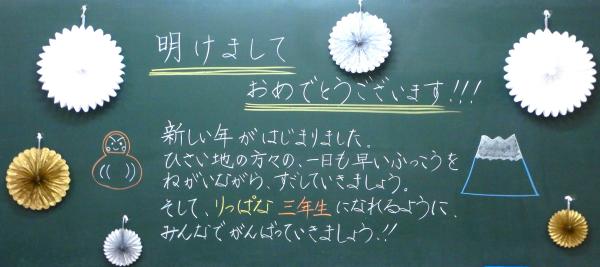 明けまして
おめでとうございます!!!
新しい年がはじまりました。
ひさい地の方々の、一日も早いふっこうを
ねがいながら、すごしていきましょう。
そして、りっぱな三年生になれるように、
みんなでがんばっていきましょう!!